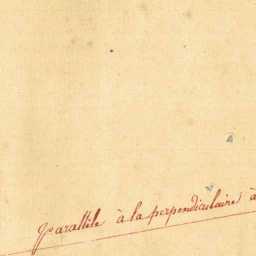 Parallèle à la perpendiculaire à